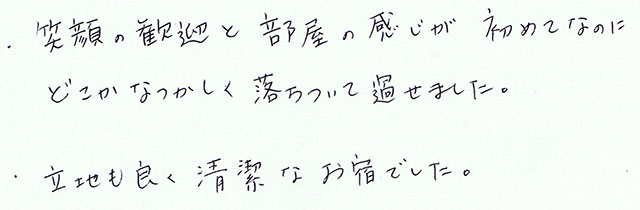 ・笑顔の歓迎と部屋の感じが初めてなのに
どこかなつかしく落ちついて過せました。
・立地も良く清潔なお宿でした。